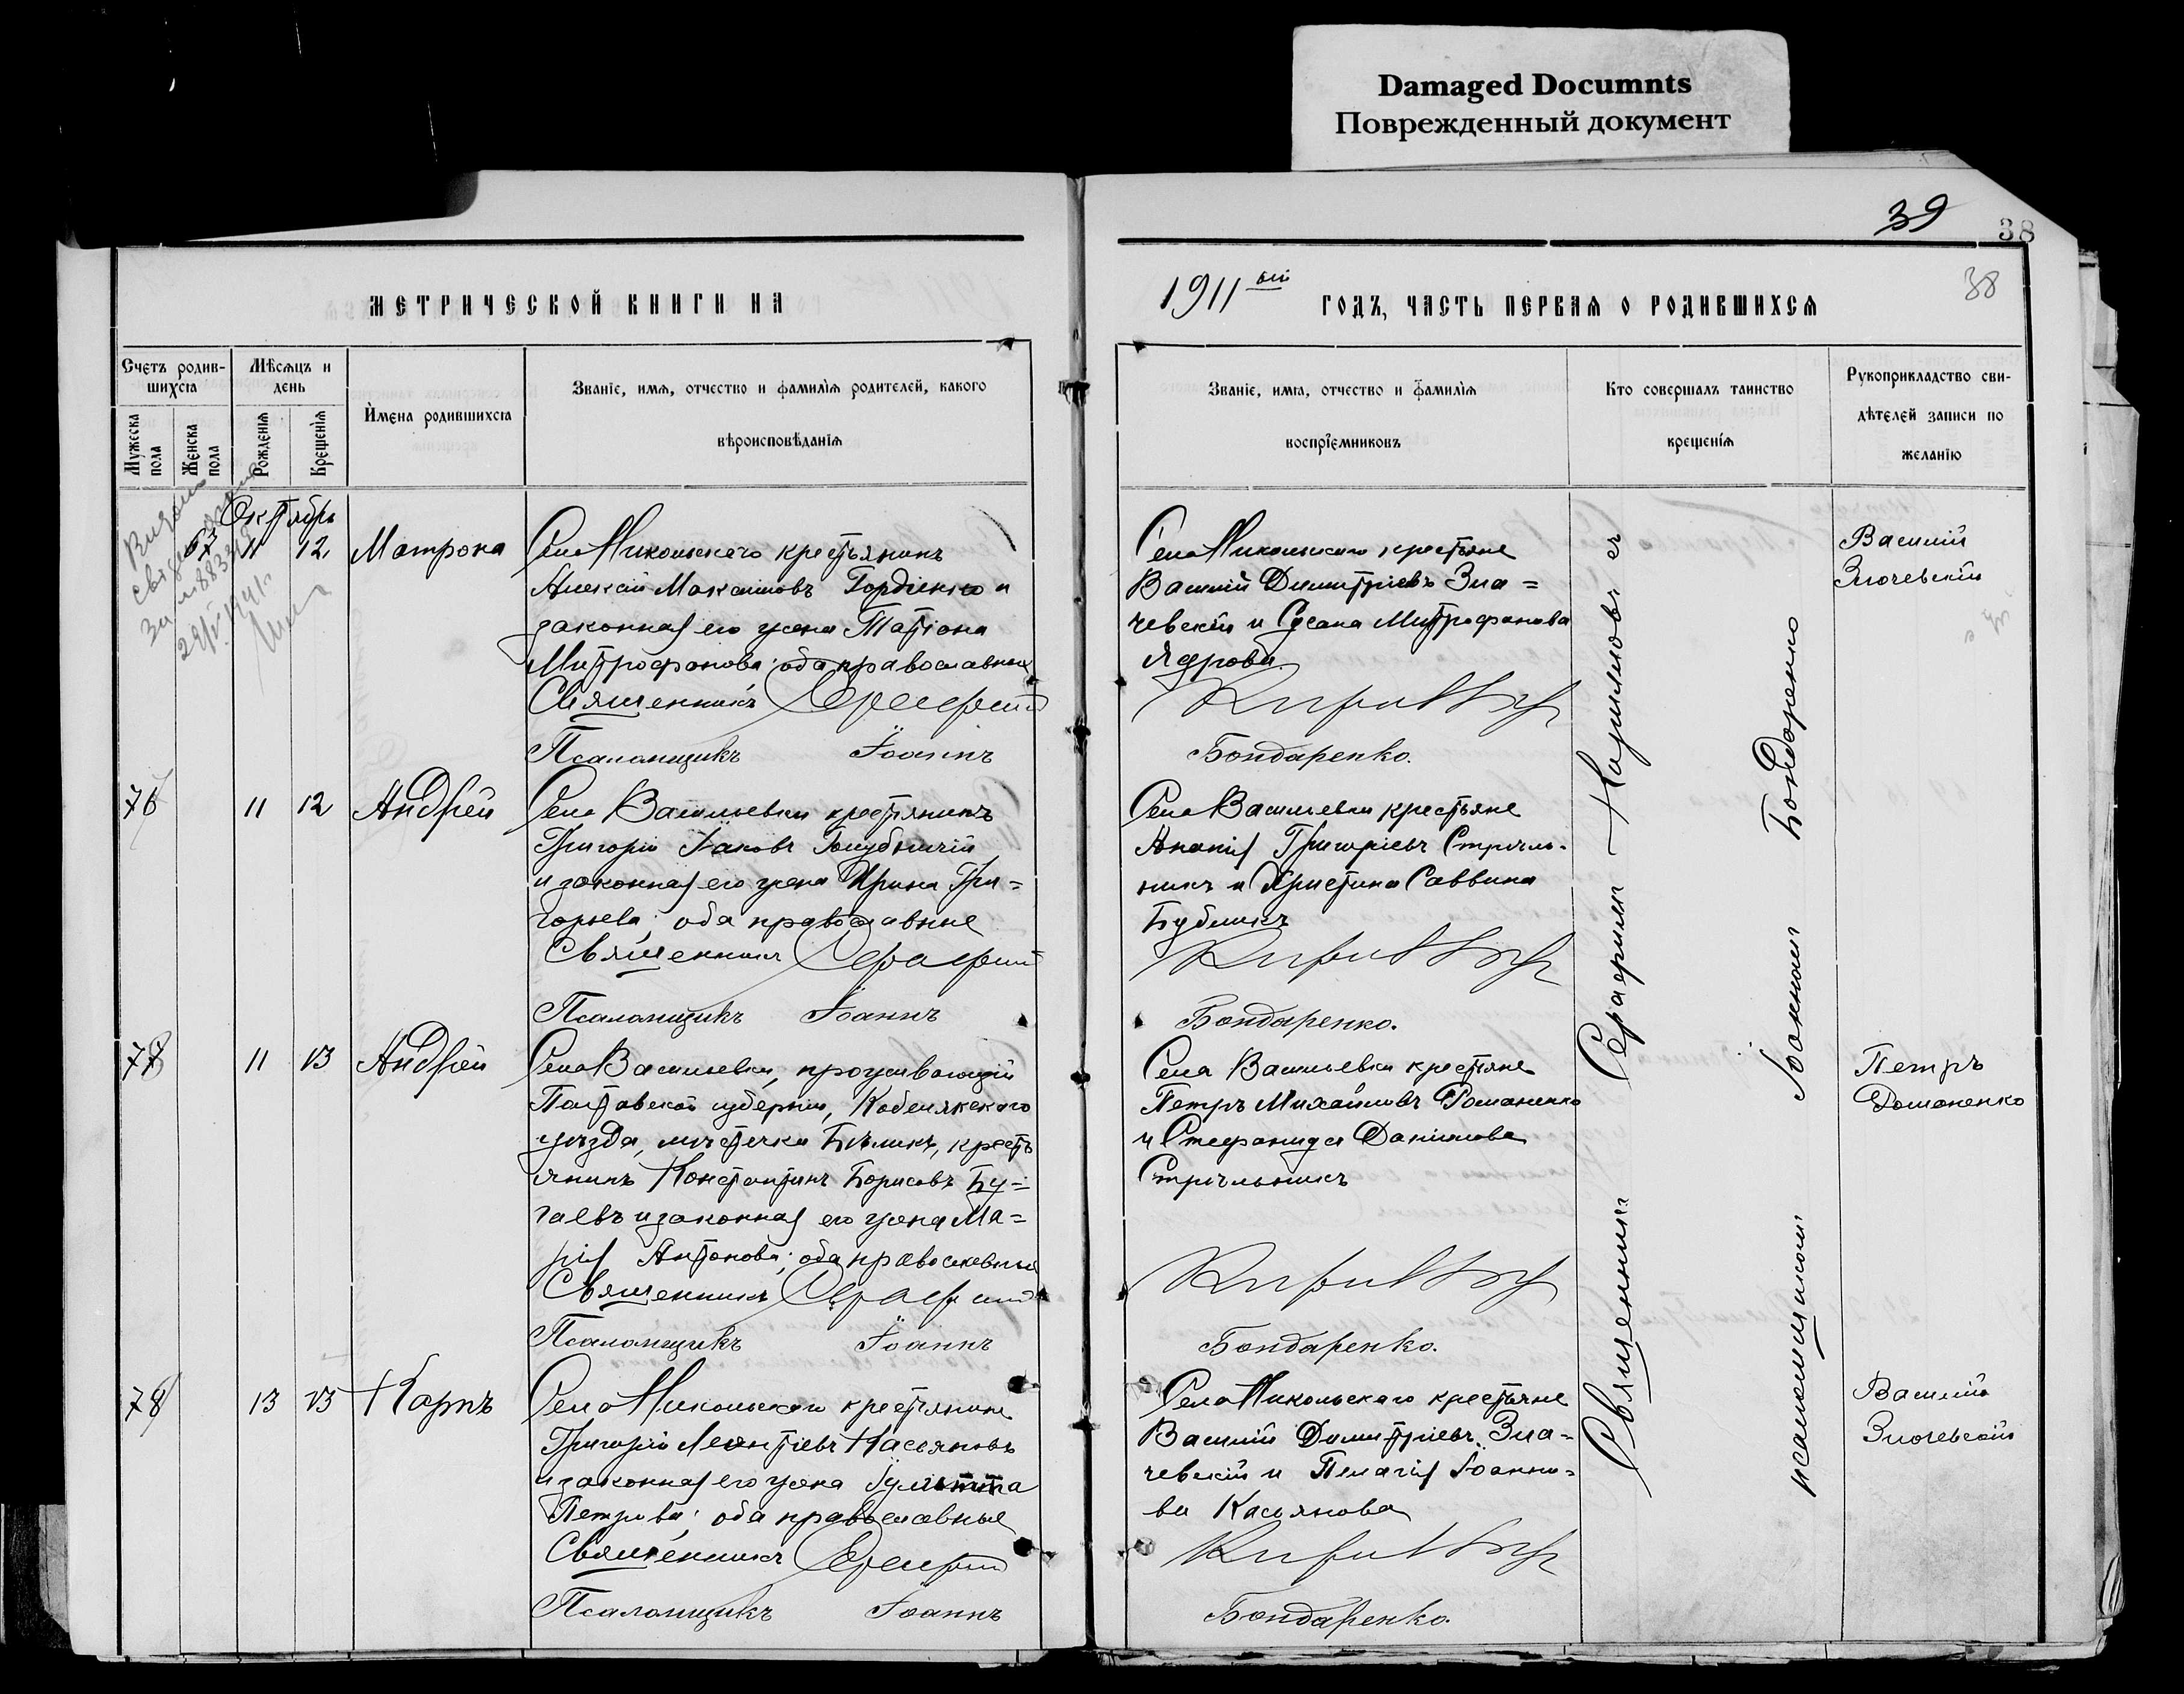 Damaged Documnts
Поврежденный документ
39
38
38
МЕТРИЧЕСКОЙ КНИГИ НА
1911ый ГОДЪ, ЧАСТЬ ПЕРВАЯ О РОДИВШИХСЯ
Счетъ родив-
шихся
Мѣсяцъ и
день
Мужеска
пола
Женска
пола
Рожденія
Крещенія
Имена родившихся
Званіе, имя, отчество и фамилія родителей, какого
вѣроисповѣданія
Званіе, имя, отчество и фамилія
воспріемниковъ
Кто совершалъ таинство
крещенія
Рукоприкладство сви-
дѣтелей записи по
желанію
Октябрь
11 12 Матрона
Села Никольскаго крестьянинъ
Алексій Максимовъ Гордіенко и
законная его жена Татіана
Митрофанова; оба православные
Священникъ Серафимъ
Псаломщикъ Іоаннъ
Села Никольскаго крестьяне
Василій Димитріевъ Зло=
чевскій и Сусана Митрофанова
Ядрова
Бондаренко.
Василій
Злочевскій
76 11 12 Андрей
Села Васильевки крестьянинъ
Григорій Іаковъ Голубничій
и законная его жена Ирина Гри=
горьева; оба православные
Священникъ Серафимъ
Псаломщикъ Іоаннъ
Села Васильевки крестьяне
Ананія Григоріевъ Стрѣль-
никъ и Христина Саввина
Бубликъ
Бондаренко.
11 13 Андрей
Села Васильевки, проживающій
Полтавской губерніи, Кобелякскаго
уѣзда, мѣстечка Бѣликъ, кресть
янинъ Константинъ Борисовъ Бу=
гаевъ и законная его жена Ма=
рія Антонова; оба православные
Священникъ Серафимъ
Псаломщикъ Іоаннъ
Села Васильевки крестьяне
Петръ Михайловъ Романенко
и Стефанида Данилова
Стрѣльникъ
Бондаренко.
Петръ
Романенко
13 13 Карпъ
Села Никольскаго крестьянинъ
Григорій Леонтіевъ Касьяновъ
и законная его жена Іулитта
Петрова; оба православные
Священникъ Серафимъ
Псаломщикъ Іоаннъ
Села Никольскаго крестьяне
Василій Димитріевъ Зло=
чевскій и Пелагія Іоанно=
ва Касьянова
Бондаренко.
Василій
Злочевскій
Священникъ Серафимъ Кириловъ съ
псаломщикомъ Іоанномъ Бондаренко